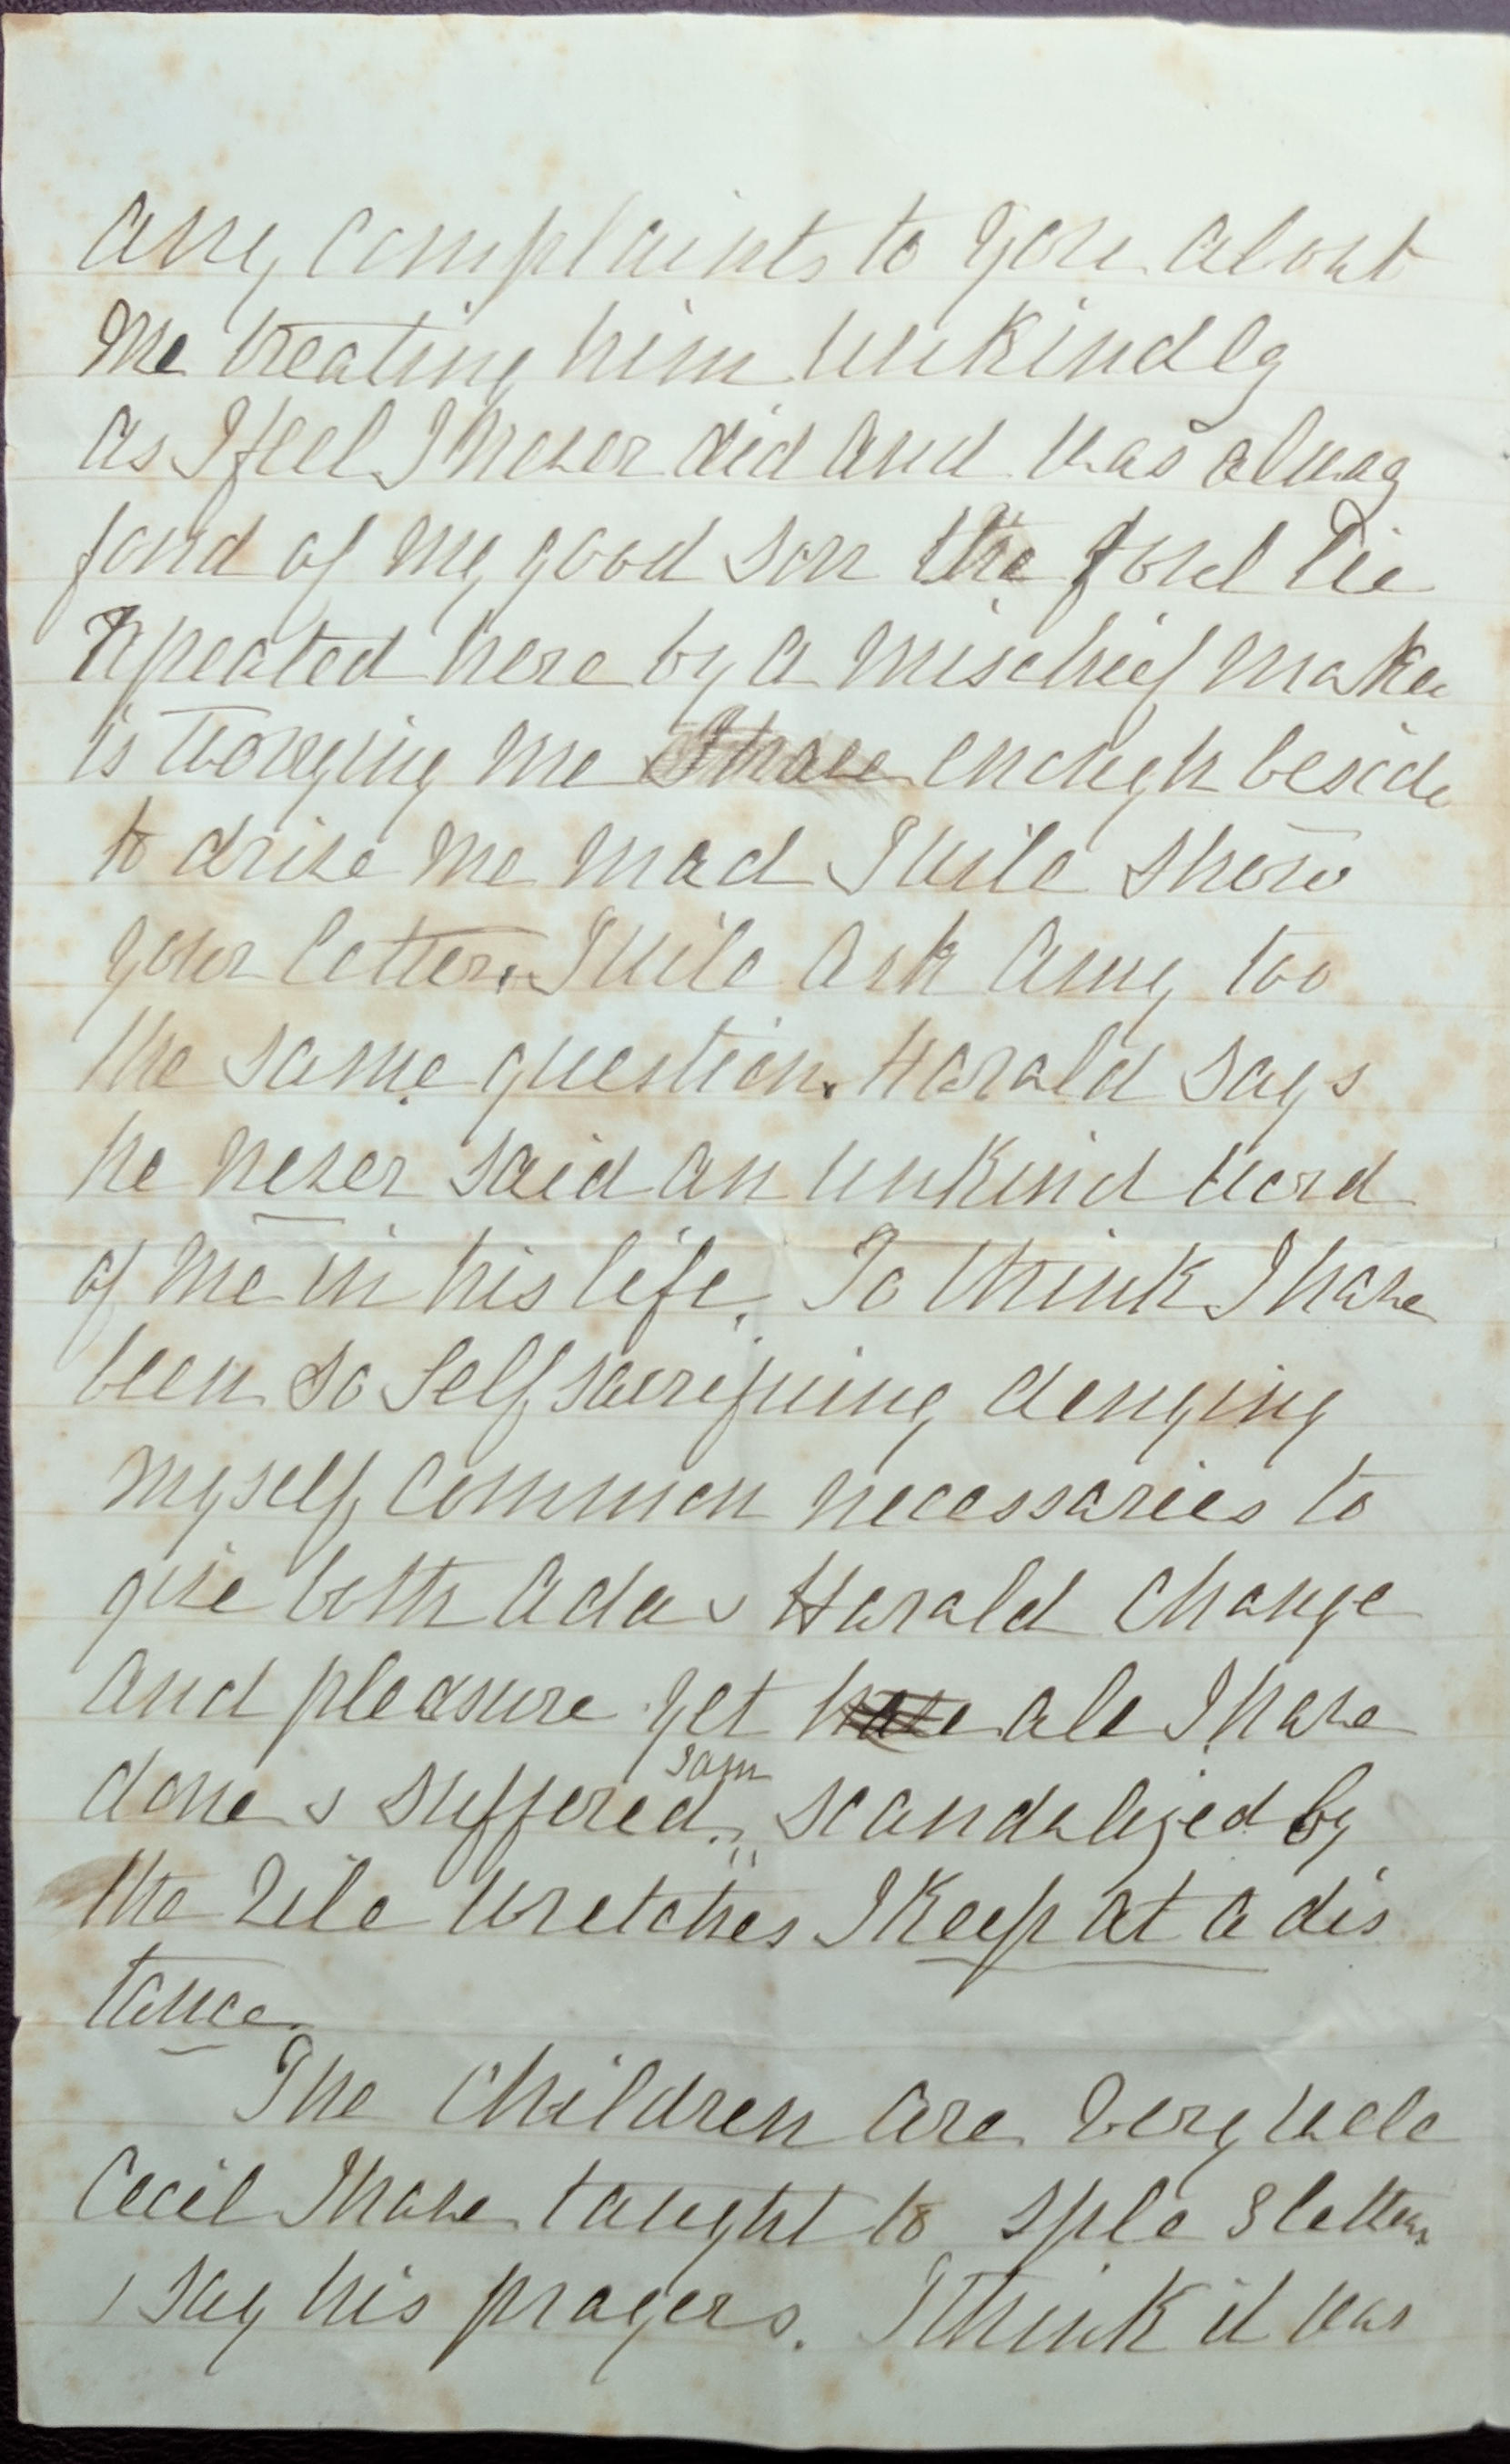 any complaints to you about
me treating him unkindly
as I feel I never did and was alway
fond of my good son the foul lie
repeated here by a mischief maker
is worrying me I have enough beside
to drive me mad I will show
your letter. I will ask Amy too
the same question. Harald says
he never said an unkind word
of me in his life. To think I have
been so self sacrifising denying
myself common necessaries to
give both Ada & Harald change
and pleasure yet have all I have
done & suffered. I am scandalized by
the vile wretches I keep at a dis
tance.
The children are very well
Cecil I have taught to sple 3 letters
& say his prayers. I think it was